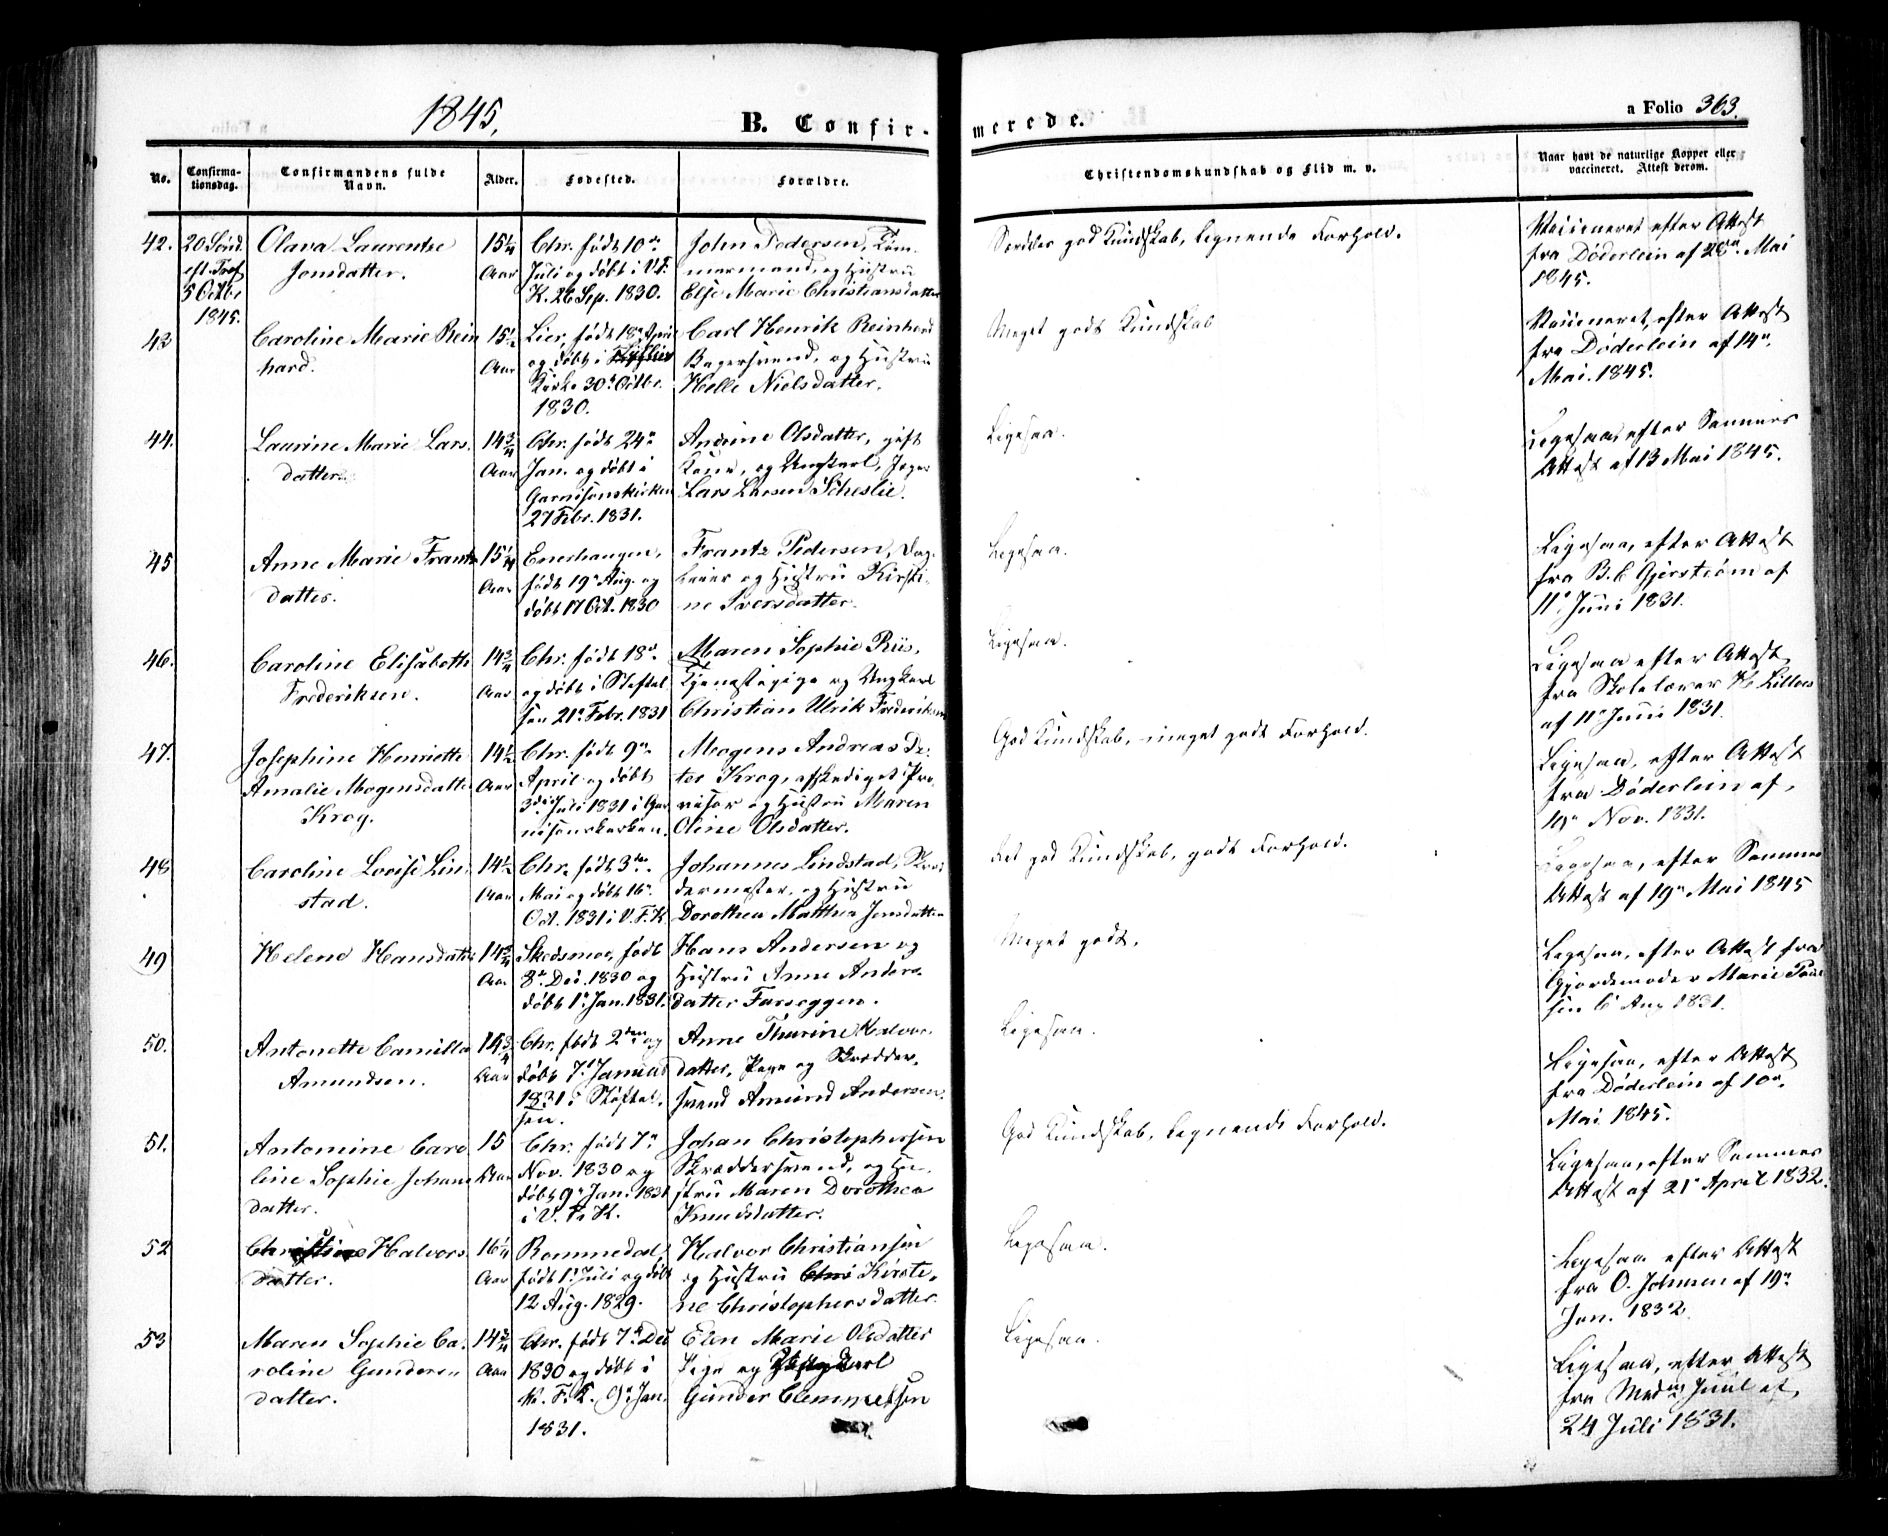 1845.
B. Confir-
merede.
a Folio 363.
No.
Confirma-
tionsdag.
Confirmandens fulde
Navn.
Alder.
Fødested.
Forældre.
Christendomskundskab og Flid m. v.
Naar havt de naturlige Kopper eller
vaccineret. Attest derom.
42.
20 Sønd.
eft. Tref.
5 Octbr
1845.
Olava Laurentze
Jonsdatter.
15 1/4
Aar
Chr. født 10de
Juli og døbt i V. F.
K. 26 Sep. 1830.
John Pedersen, Tøm-
mermand, og Hustru
Else Marie Christiansdatter
god Kundskab, lignende Forhold.
Vaccineret efter Attest
fra Døderlein af 28de Mai
1845.
43
Caroline Marie Rein
hard.
15 1/2
Aar
Lier, født 18de April
og døbt i
Kirke 30te Octbr.
1830.
Carl Henrik Reinhard
Bagersvend, og Hustru
Helle Nielsdatter.
Meget godt Kundskab
Vaccineret, efter Attest
fra Døderlein af 14de
Mai. 1845.
44.
Laurine Marie Lars-
datter.
14 3/4
Aar
Chr. født 24de
Jan. og døbt i
Garnisonskirken
27 Febr. 1831.
Andrine Olsdatter, gift
Kone, og Ungkarl, Jæger
Lars Larsen Scheslie.
Ligesaa.
Ligesaa, efter Sammes
Attest af 13 Mai 1845.
45
Anne Marie Frants
datter.
15 1/4
Aar
Enerhaugen,
født 19de Aug. og
døbt 17 Oct. 1830
Frantz Pedersen, Dag-
leier og Hustru Kirsti-
ne Sversdatter.
Ligesaa.
Ligesaa, efter Attest
fra B. C. Gjerstrøm af
11te Juni 1831.
46.
Caroline Elisabeth
Frederiksen.
14 3/4
Aar
Chr. født 18de
og døbt i Stiftel
sen 21de Febr. 1831
Maren Sophie Riis,
Tjenestepige og Ungkarl
Christian Ulrik Frederiksen
Ligesaa.
Ligesaa efter Attest
fra Skolelærer
af 11te Juni 1831.
47.
Josephine Henriette
Amalie Mogensdatter
Krog.
14 1/2
Aar
Chr. født 9de
April og døbt
3die Juli 1831 i Gar
nisonskirken.
Mogens Andreas Pe-
ter Krog, afskediget Pro-
visor og Hustru Maren
Oline Olsdatter.
God Kundskab, meget godt Forhold.
Ligesaa, efter Attest
fra Døderlein af,
Nov. 1831.
48
Caroline Lovise Lin-
stad.
14 1/2
Aar
Chr. født 3die
Mai og døbt 16de
Oct. 1831 i V. F. K
Johannes Lindstad, Skræ
dermester, og Hustru
Dorothea Matthea Jensdatter
Ret god Kundskab, godt Forhold.
Ligesaa, efter Sammes
Attest af 19de Mai 1845
49
Helene Hansdatter
14 3/4
Aar.
Skedsmoe, født
8de Dec. 1830 og
døbt 1te Jan. 1831.
Hans Andersen og
Hustru Anne Anders-
datter Farseggen.
Meget godt,
Ligesaa, efter Attest fra
Gjordemoder Marie Poul
sen 6 Aug 1831.
50.
Antonette Camilla
Amundsen.
14 3/4
Aar
Chr. født 2den og
døbt 7de Januar
1831 i Stiftel-
sen.
Anne Thurine Halvors
datter, Pige og Skrædder-
svend Amund Andersen.
Ligesaa.
Ligesaa, efter Attest
fra Døderlein af 10de
Mai 1845.
51.
Antomine Caro
line Sophie Johans
datter.
15
Aar
Chr. født 7de
Nov. 1830 og
døbt 9de Jan. 1831
i V. F. K.
Johan Christophersen
Skræddersvend, og Hu-
stru Maren Dorothea
Knudsdatter.
God Kundskab, lignende Forhold.
Ligesaa, efter Sammes
Attest af 21de April 1832.
52
Christine Halvors
datter.
16 1/4
Aar
Rommedal,
født 1te Juli og døbt
12 Aug. 1829.
Halvor Christiansen
og Hustru Kirsti-
ne Christophersdatter.
Ligesaa.
Ligesaa efter Attest
fra O. Johnsen af 19de
Jan. 1832.
53
Maren Sophie Ca-
roline Gunders-
datter.
14 3/4
Aar
Chr. født 7de Dec
1830 og døbt i
V. F. K. 9de Jan.
1831.
Elen Marie Olsdatter
Pige og Ungkarl
Gunder Clemmetsen
Ligesaa.
Ligesaa, efter Attest
fra Juul af
24 Juli 1831.